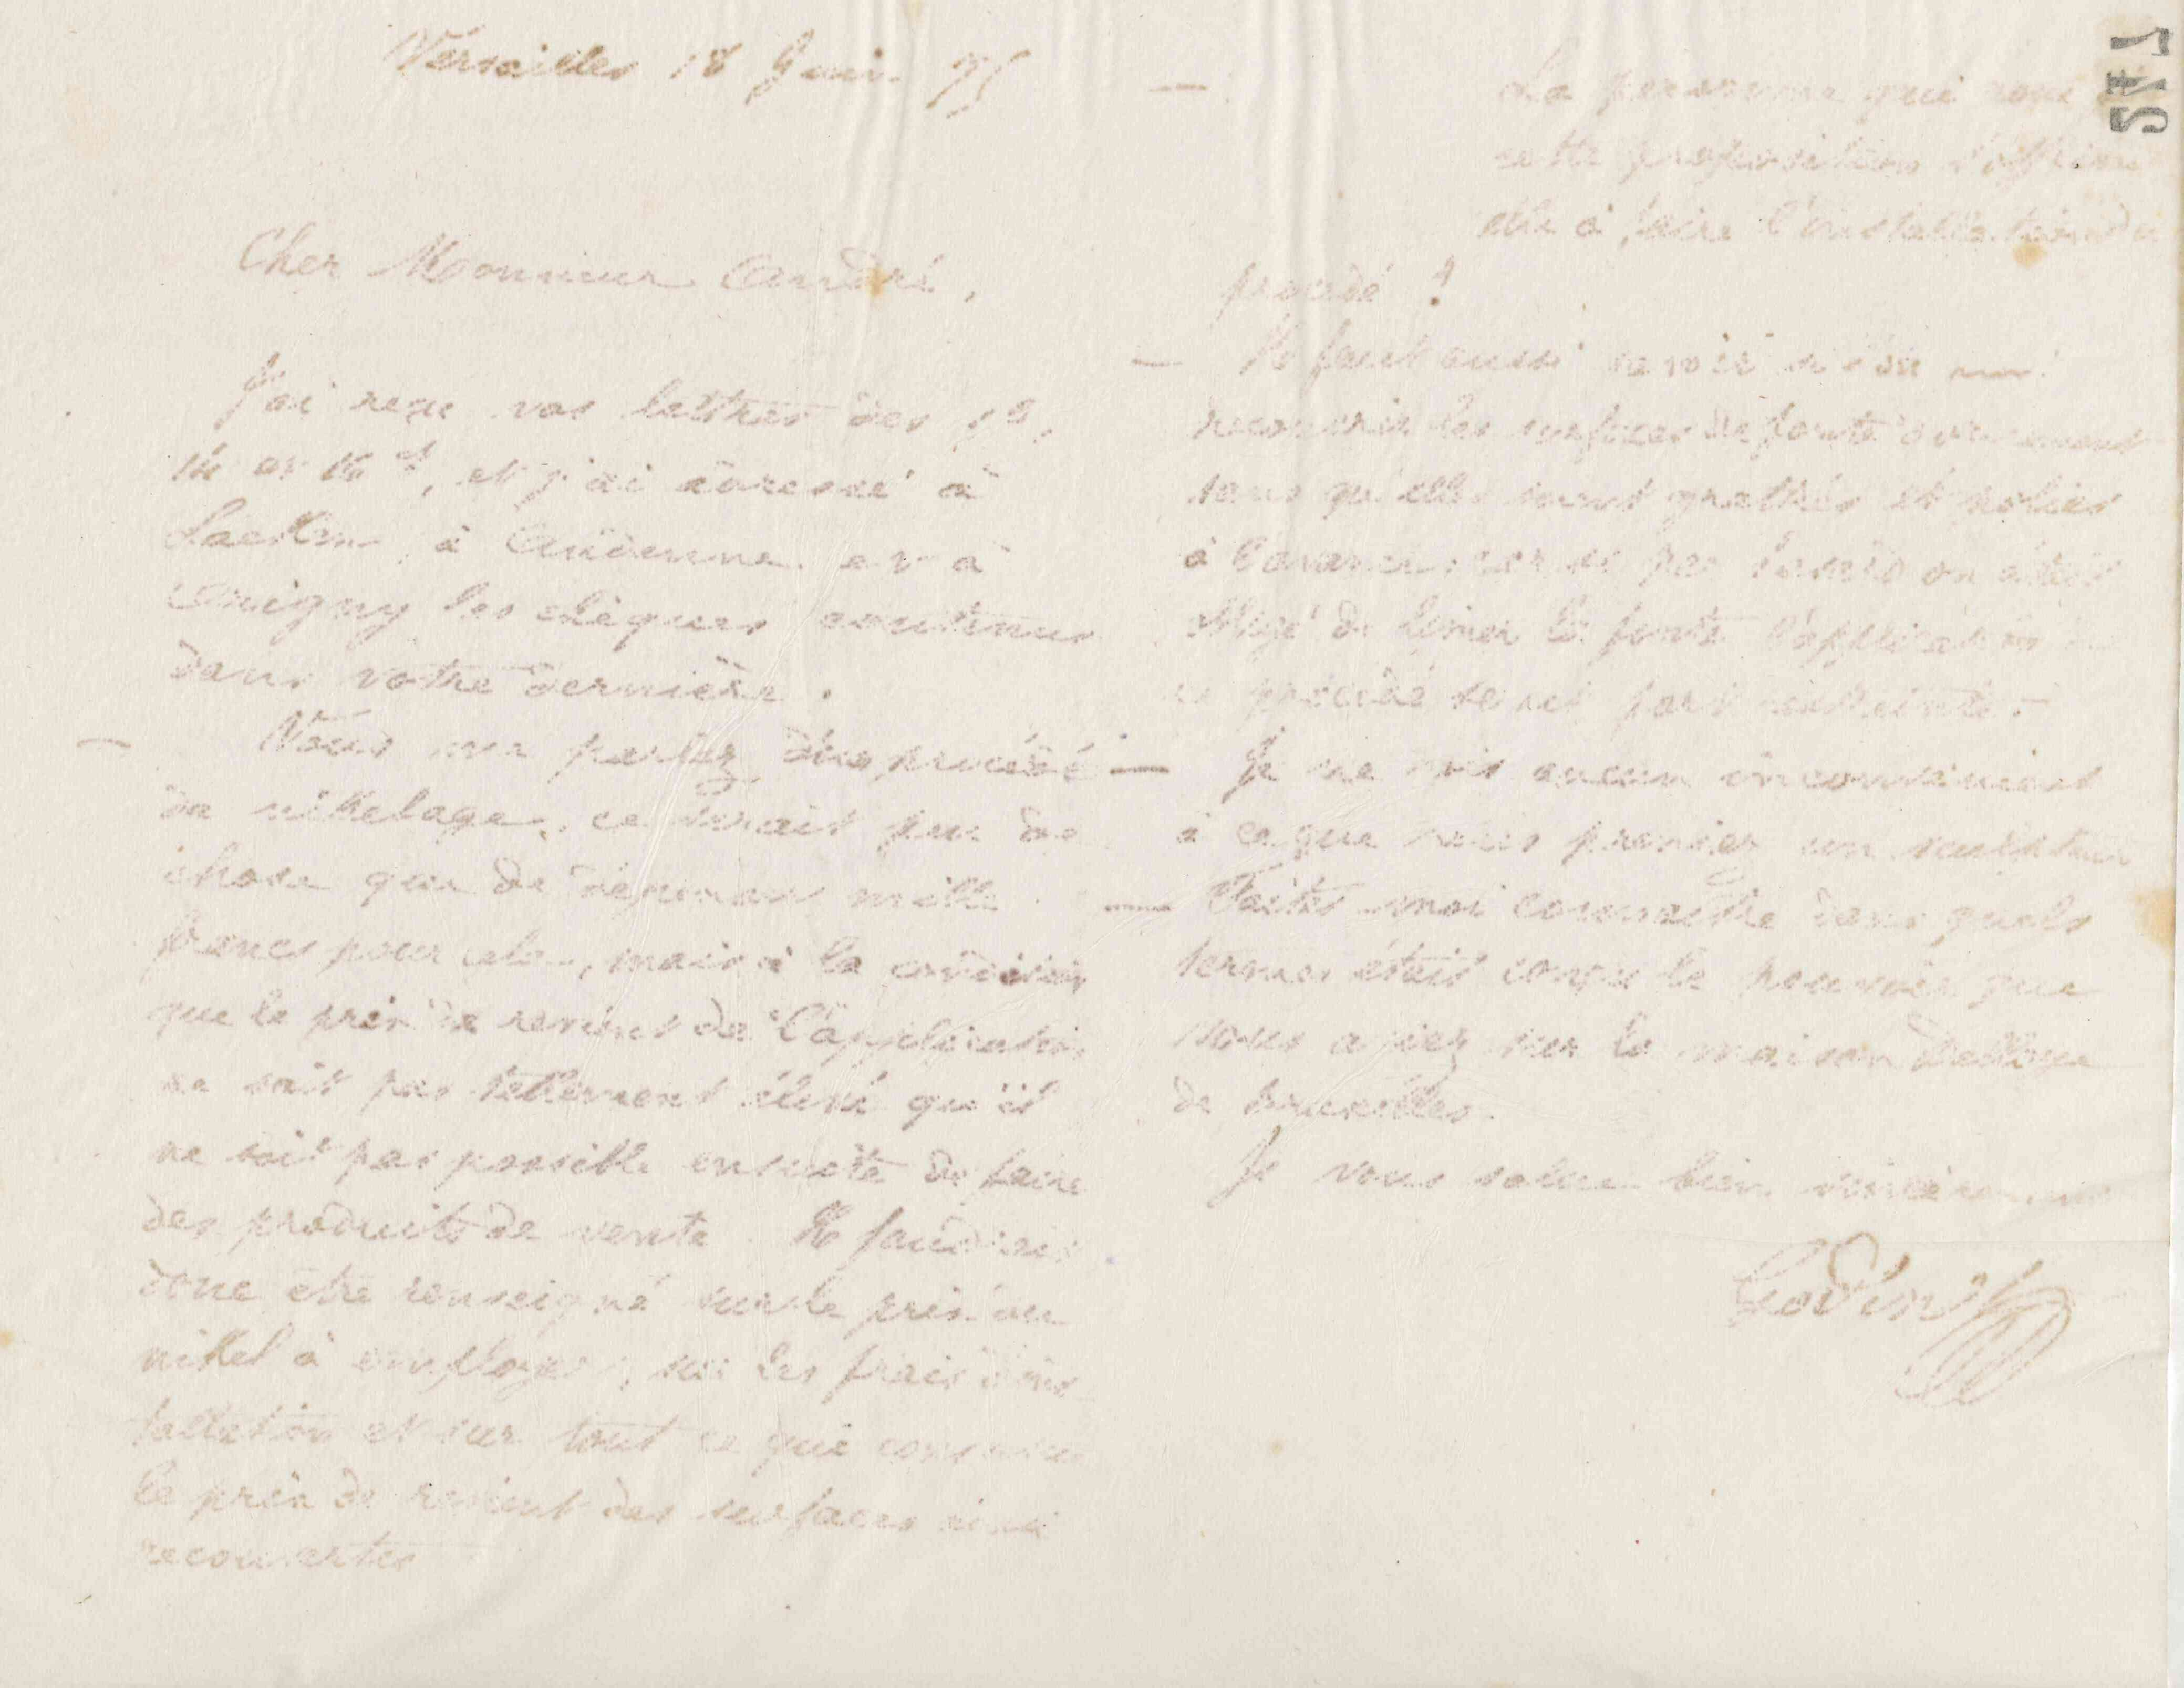 Versailles 18 Juin 75
Cher Monsieur André,
J'ai reçu vos lettres des
14 et 16 ct, et j'ai adressé à
Laeken, à Andenne et à
Origny les chèques contenus
dans votre dernière.
— Vous me parlez d'un procédé
de nikelage, ce serait peu de
chose que de dépenser mille
francs pour cela, mais à la condition
que le prix de revient de l'application
ne soit pas tellement élevé qu'il
ne soit pas possible ensuite de faire
des produits de vente. Il faudrait
donc être renseigné sur le prix du
nikel à employer, sur les frais d'ins
tallation et sur tout ce qui concerne
le prix de revient des surfaces ainsi
recouvertes
— La personne qui vous
cette proposition s'offre
elle à faire l'installation du
procédé ?
— Il faut aussi savoir si on
recouvrir les surfaces de fonte
sans qu'elles soient grattées et polies
à l'avance, car si par on était
obligé de limer la fonte l'application
ce procédé serait fort restreinte.
— Je ne vois aucun inconvénient
à ce que vous preniez un sculpteur
— Faites moi connaître dans quels
termes était conçu le pouvoir que
vous aviez sur la maison
de Bruxelles.
Je vous salue bien sincèrement
Godin
575